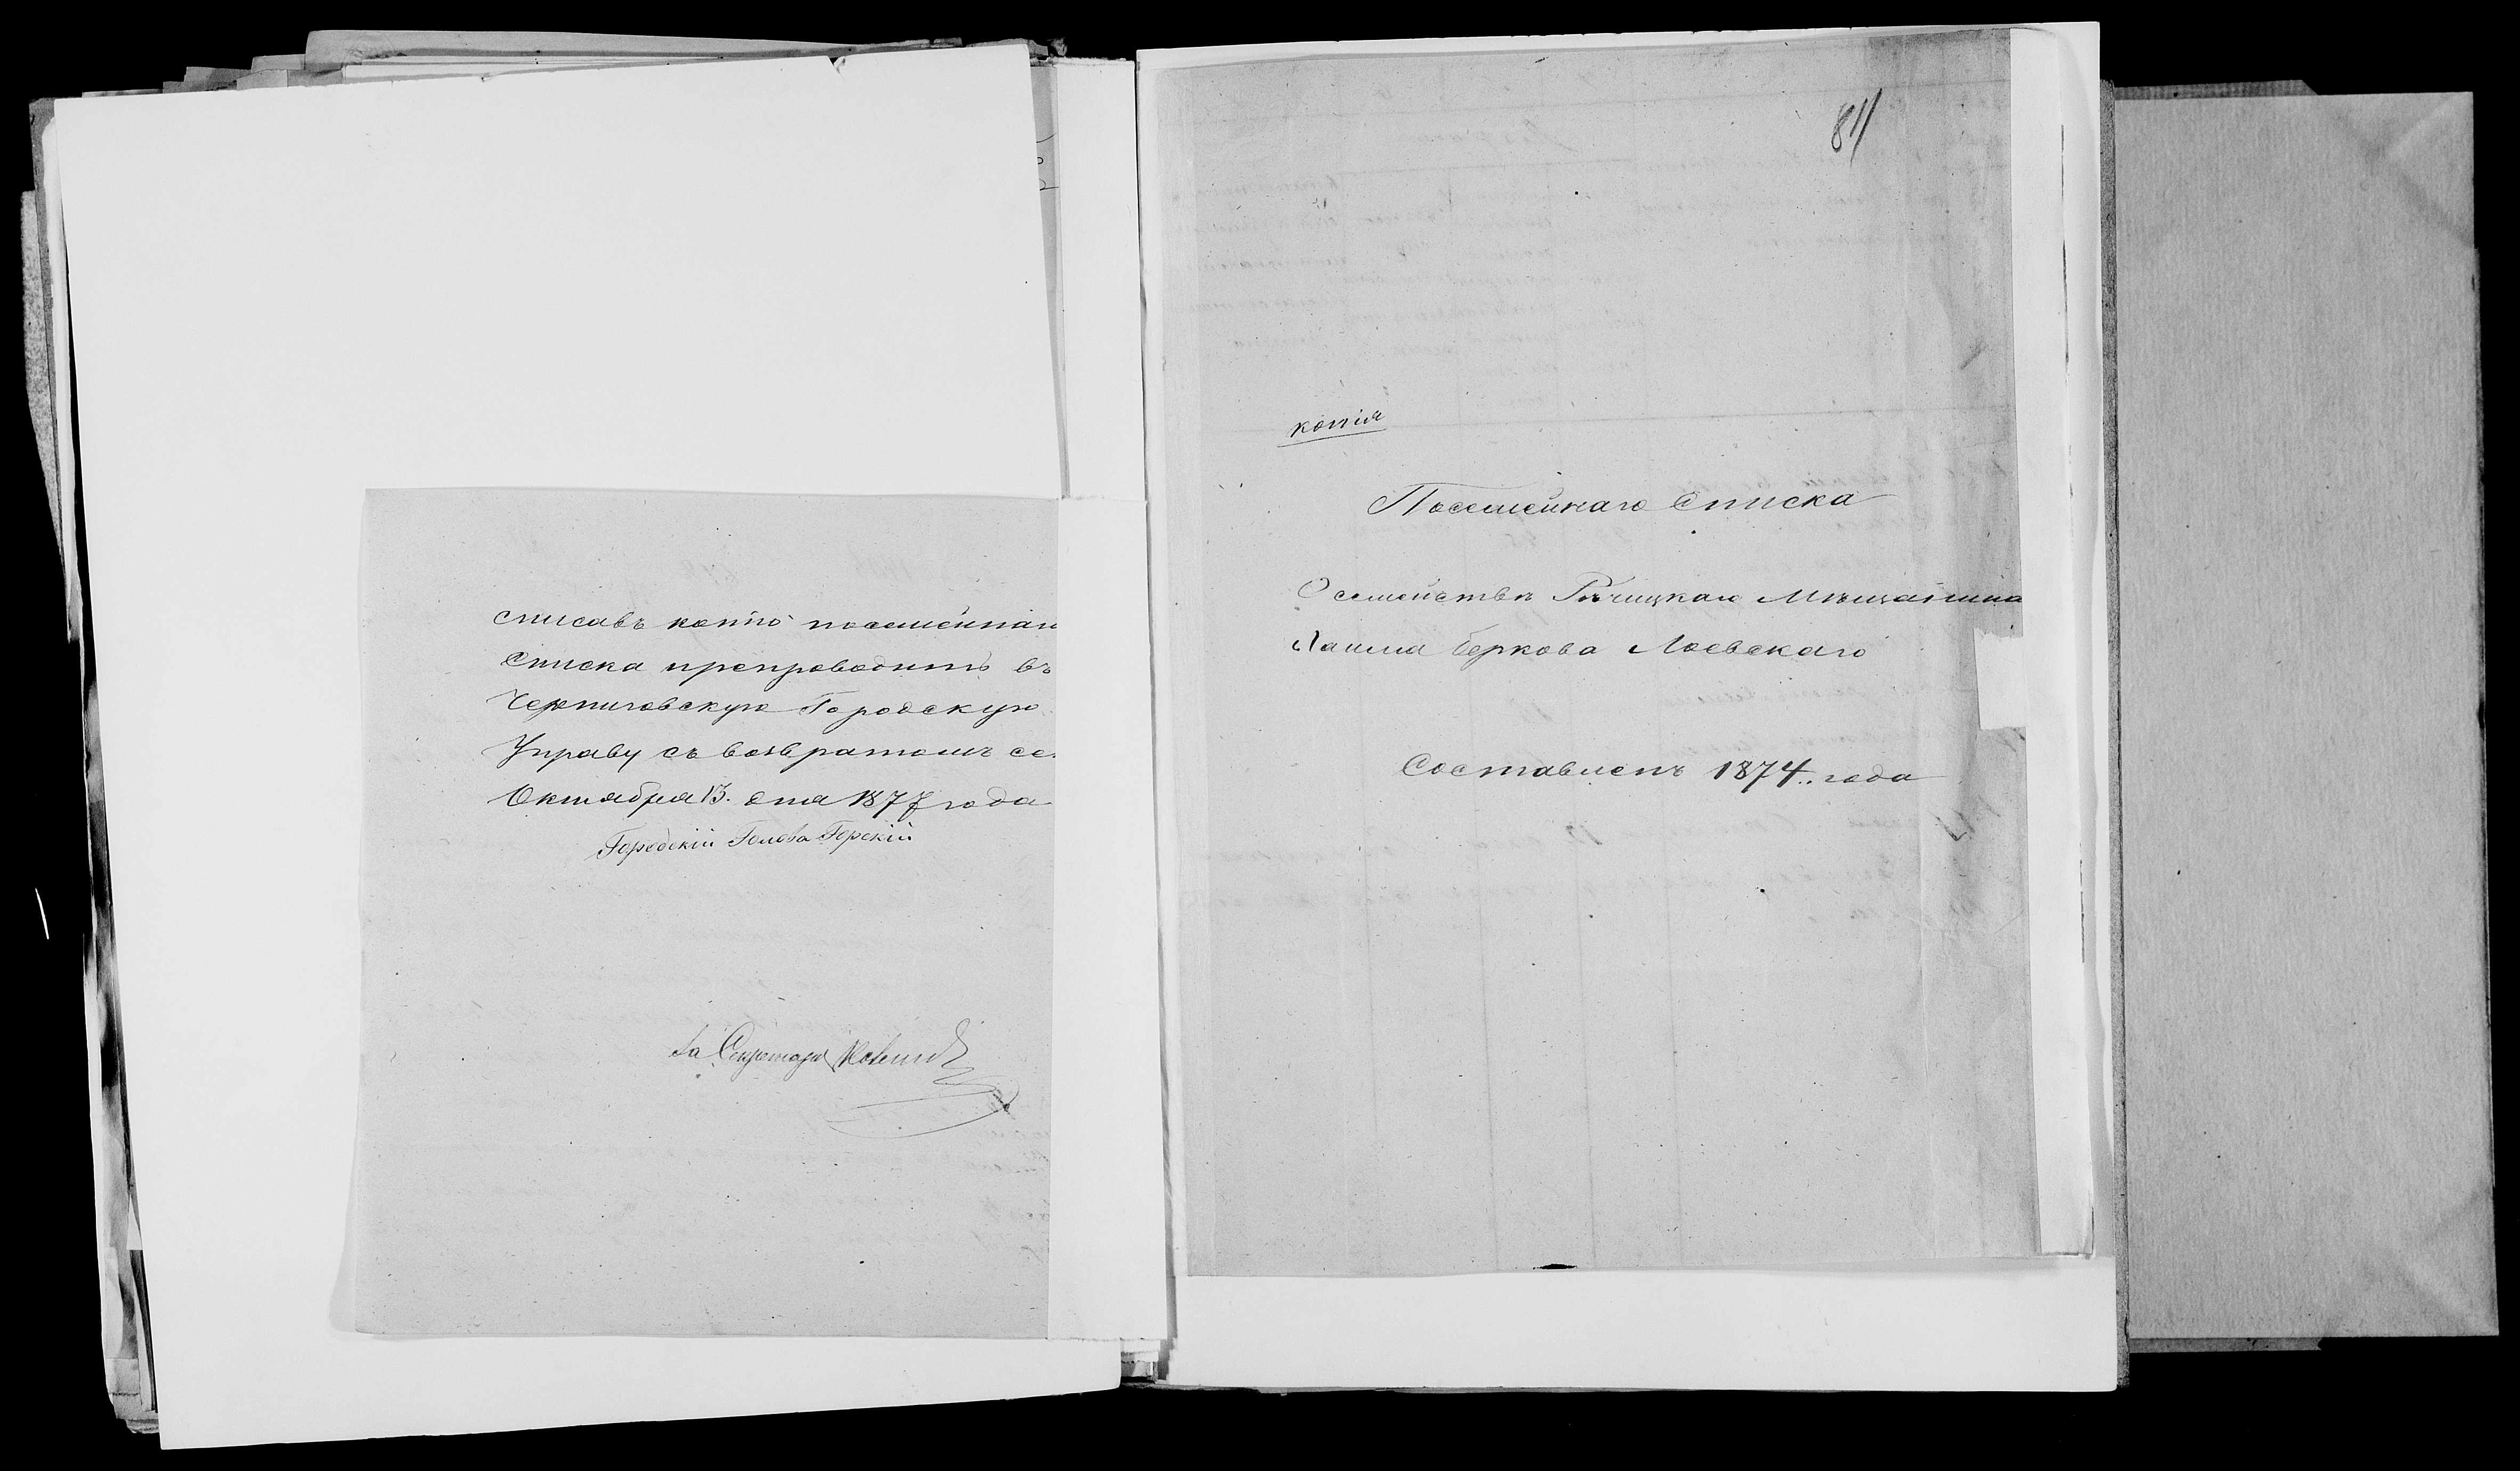 списавъ копію посемейнаго
списка препроводить въ
Черниговскую Городскую
Управу съ возвратомъ се.
Октября 13. дня 1877 года
Городскій Голова Горскій
За Секретаря
811
копія
Посемейнаго списка
О семействѣ Рѣчицкаго Мѣщанина
Беркова Лоевскаго
Составленъ 1874.. года